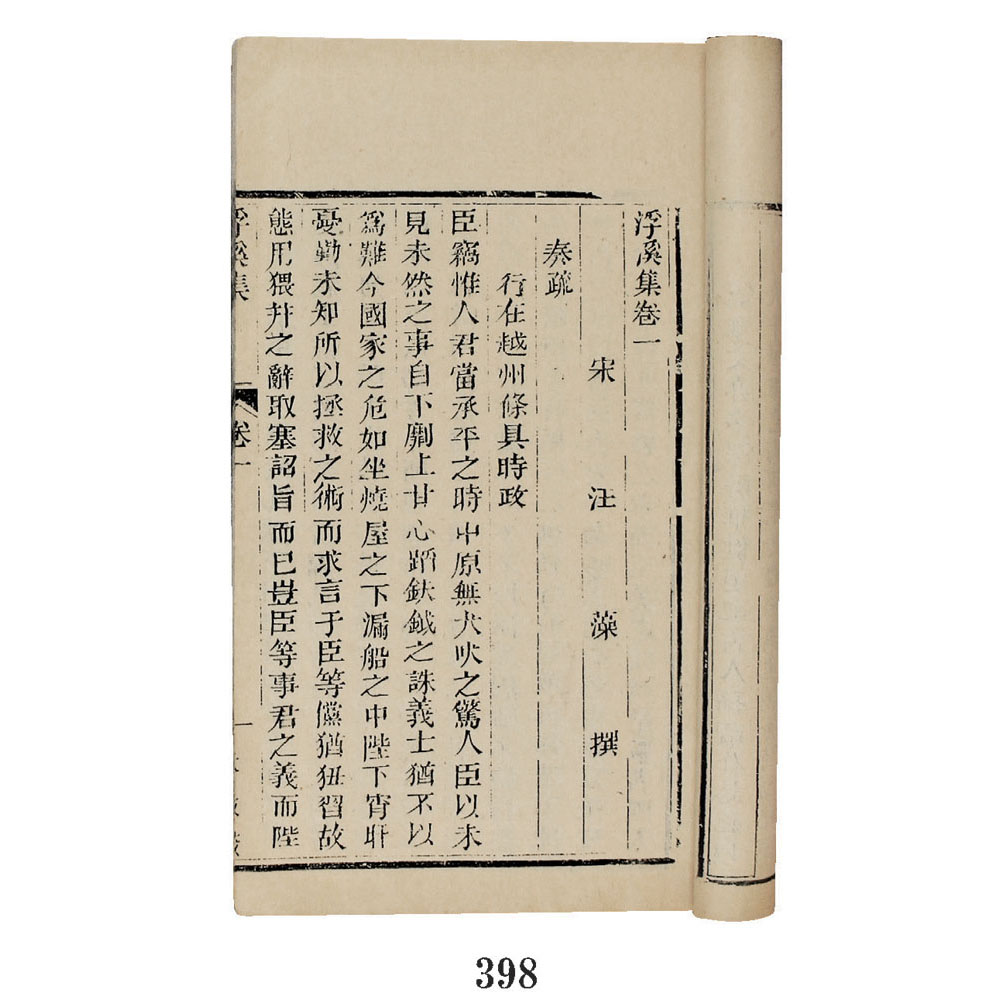 浮溪集卷一
宋 汪 藻 撰
奏疏
行在越州條具時政
臣竊惟人君當承平之時中原無犬吠之驚人臣以未
見未然之事自下劘上甘心蹈鈇鉞之誅義士猶不以
爲難今國家之危如坐燒屋之下漏船之中陛下宵旰
憂勤未知所以拯救之術而求言于臣等儻猶狃習故
態用猥幷之辭取塞詔旨而已豈臣等事君之義而陛
浮溪集 卷一
398